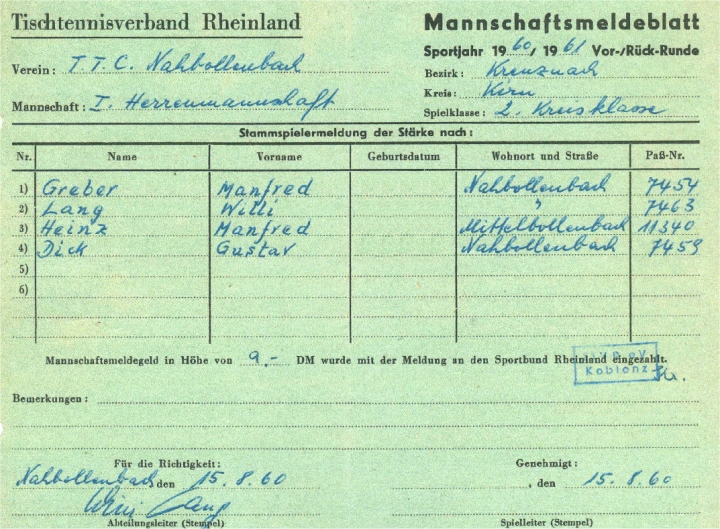 Tischtennisverband Rheinland
Mannschaftsmeldeblatt
Sportjahr 1960/1961 Vor-/Rück-Runde
Verein: T.T.C. Nahbollenbach
Bezirk: Kreuznach
Kreis: Kirn
Mannschaft: I. Herrenmannschaft
Spielklasse: 2. Kreisklasse
Stammspielermeldung der Stärke nach:
Nr. Name Vorname Geburtsdatum Wohnort und Straße Paß-Nr.
1) Greber Manfred Nahbollenbach 7454
2) Lang Willi " 7463
3) Heinz Manfred Mittelbollenbach 11340
4) Dick Gustav Nahbollenbach 7459
5)
6)
Mannschaftsmeldegeld in Höhe von 9,- DM wurde mit der Meldung an den Sportbund Rheinland eingezahlt.
Koblenz
Bemerkungen:
Für die Richtigkeit:
Genehmigt:
Nahbollenbach, den 15.8.60
, den 15.8.60
Willi Lang
Abteilungsleiter (Stempel)
Spielleiter (Stempel)